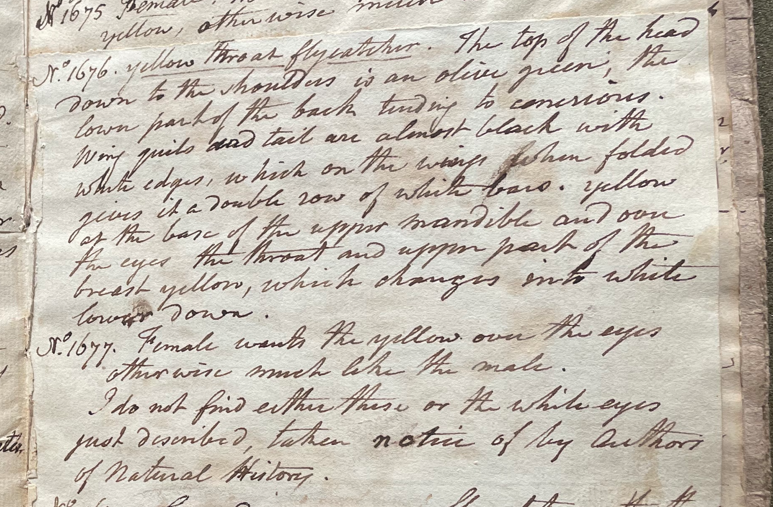 No. 1675 Female
yellow, otherwise much
No. 1676. yellow throat flycatcher. The top of the head
down to the shoulders is an olive green, the
lown part of the back tending to cenerious.
Wing quils and tail are almost black with
white edges, which on the wings when folded
gives it a double row of white bars. yellow
at the base of the upper mandible and over
the eyes the throat and upper part of the
breast yellow, which changes into white
lower down.
No. 1677. Female wants the yellow over the eyes
otherwise much like the male.
I do not find either these or the white eyes
just described, taken notice of by Authors
of Natural History.